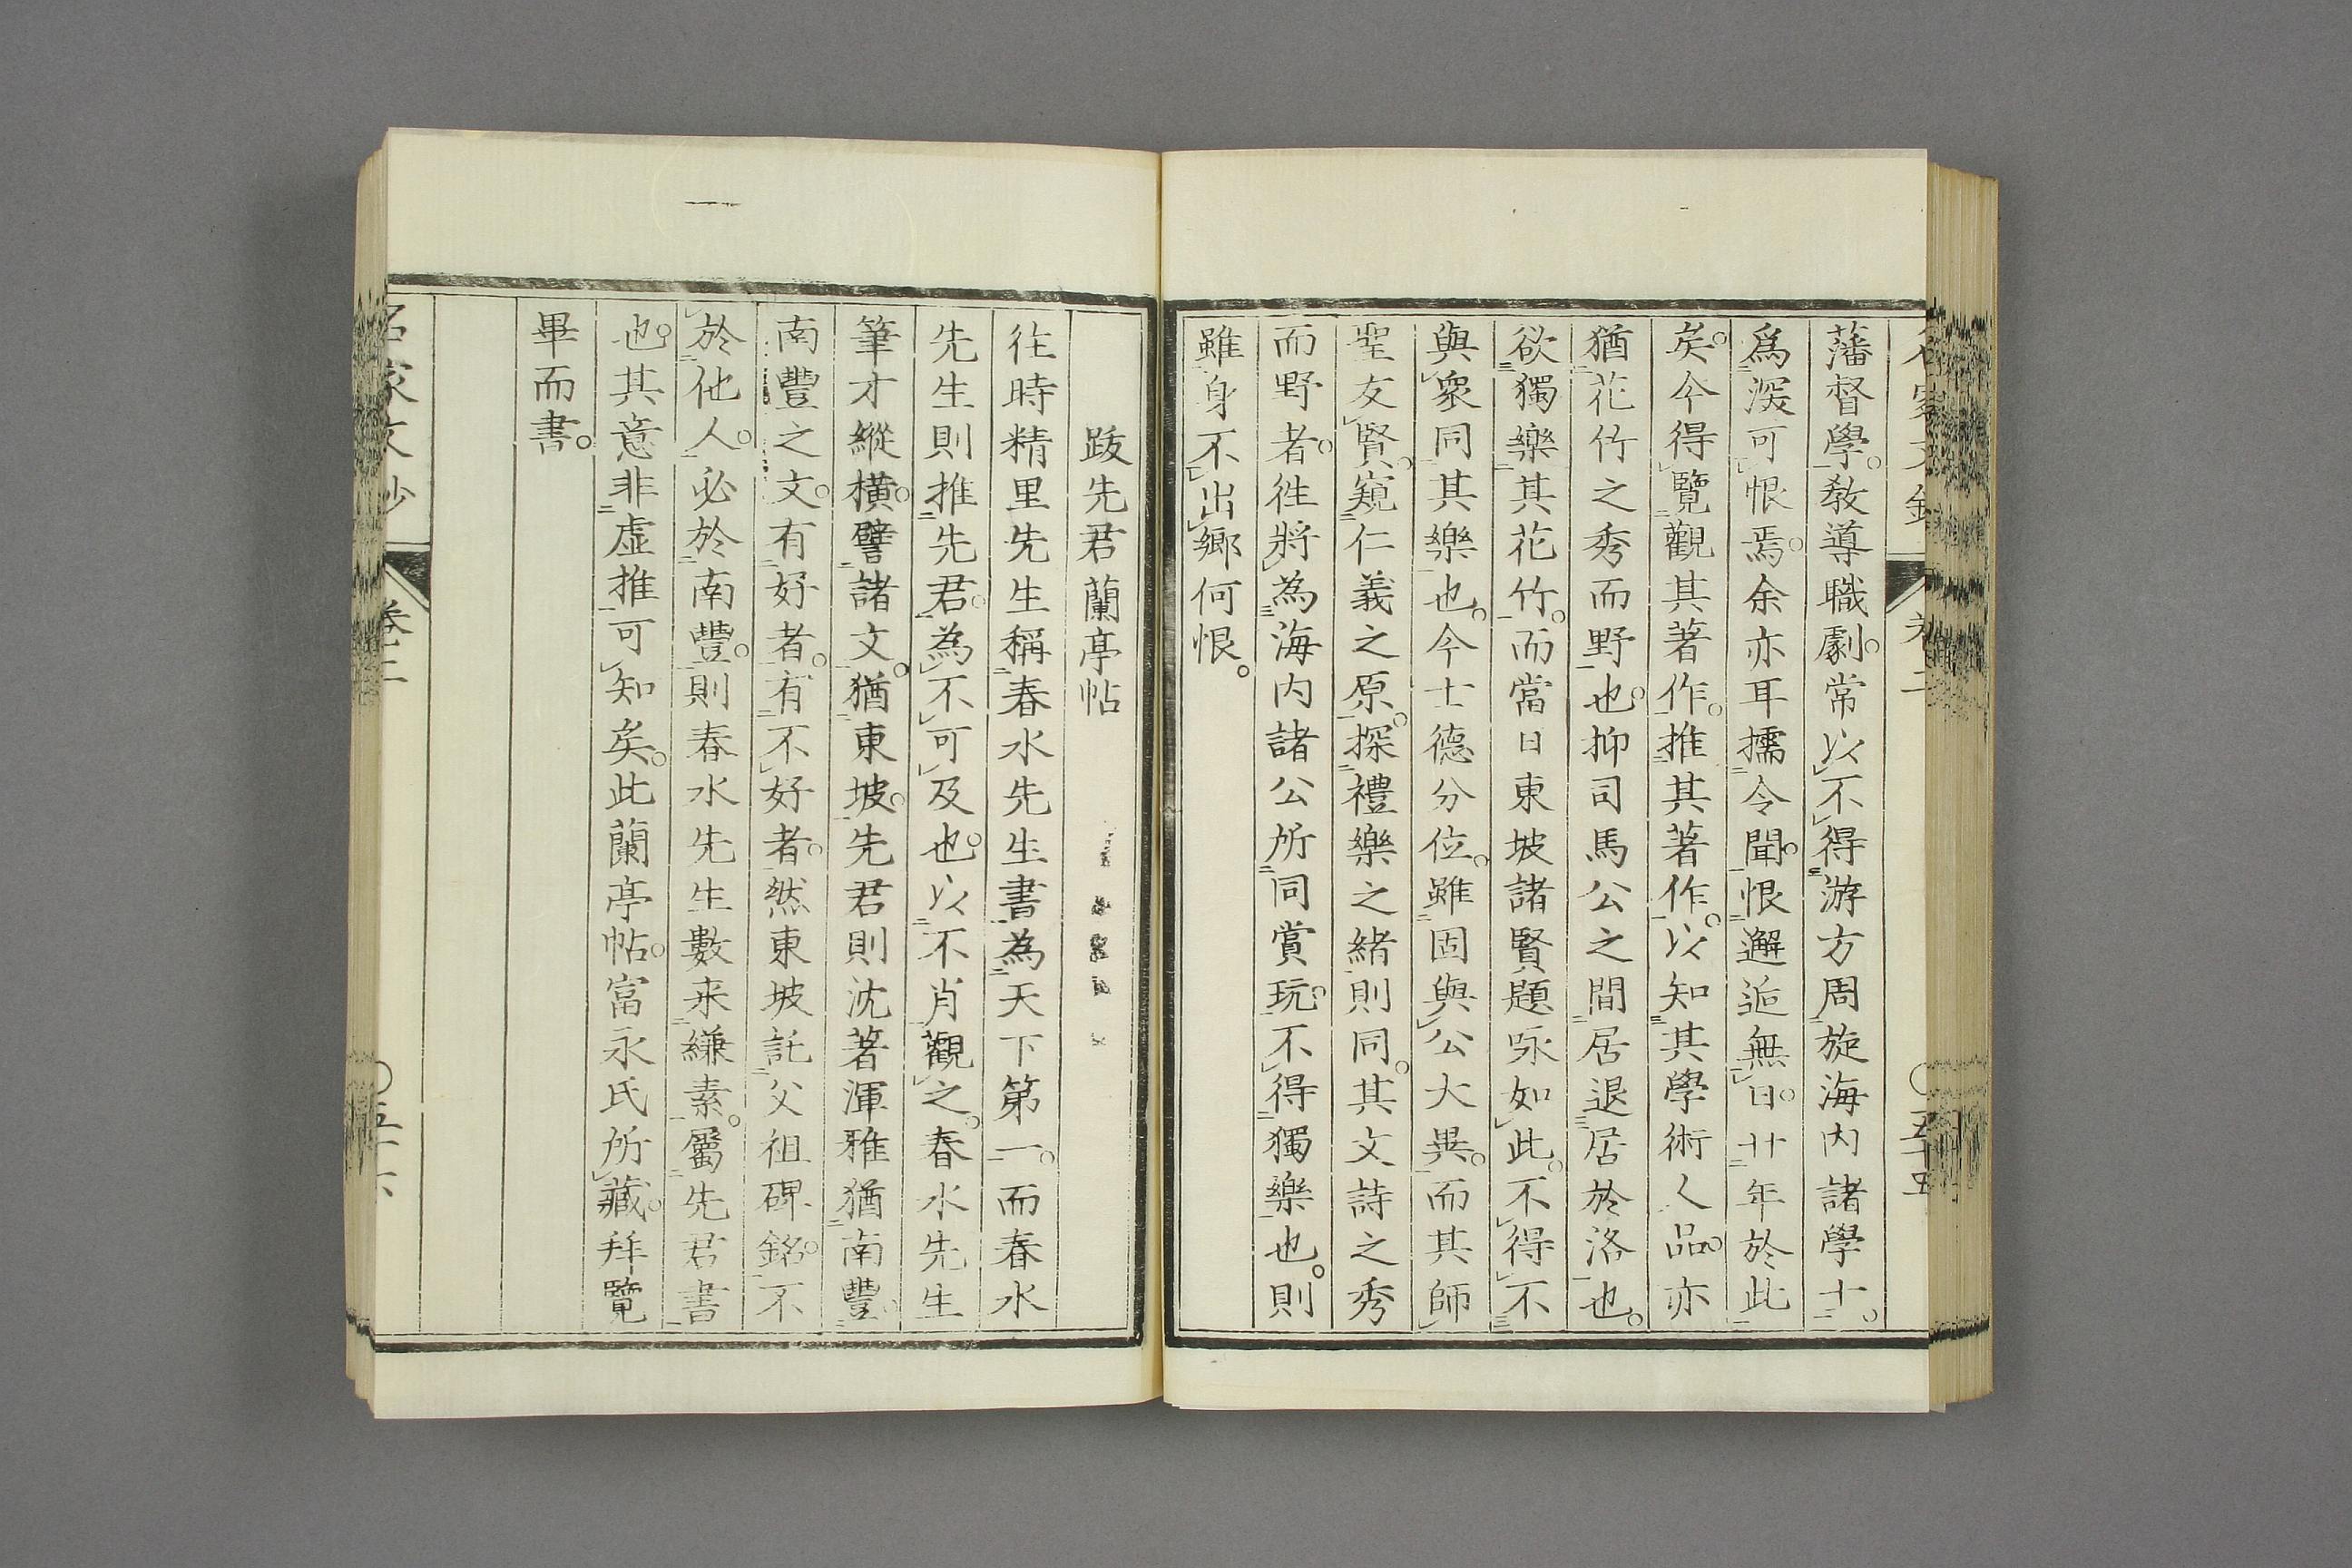 藩督學。教導職劇。常以不得游方周旋海内諸學士。
爲深可恨焉。余亦耳擩令聞。恨邂逅無日。廿年於此
矣。今得覽觀其著作。推其著作。以知其學術人品。亦
猶花竹之秀而野也。抑司馬公之間居退居於洛也。
欲獨樂其花竹。而當日東坡諸賢題咏如此。不得不
與衆同其樂也。今士德分位。雖固與公大異。而其師
聖友賢。窺仁義之原。探禮樂之緒則同。其文詩之秀
而野者。徃將為海内諸公所同賞玩。不得獨樂也。則
雖身不出鄉何恨。
卷二
五十五
跋先君蘭亭帖
往時精里先生稱春水先生書為天下第一。而春水
先生則推先君。為不可及也。以不肖觀之。春水先生
筆才縱橫。譬諸文。猶東坡。先君則沈著渾雅猶南豐。
南豐之文。有好者。有不好者。然東坡託父祖碑銘。不
於他人。必於南豐。則春水先生數来縑素。屬先君書
也。其意非虛推可知矣。此蘭亭帖。富永氏所藏。拜覽
畢而書。
名家文抄
卷二
五十六